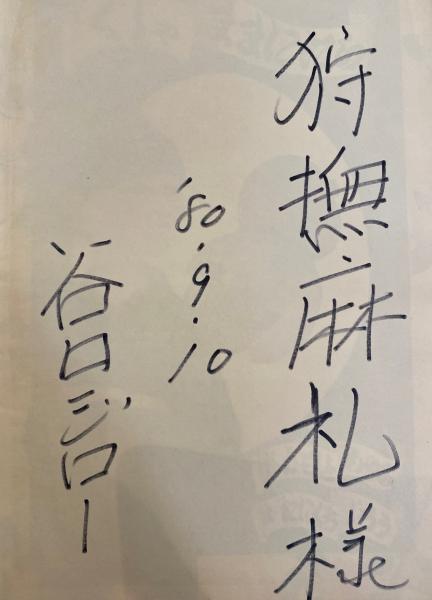 狩撫麻礼様
'80.9.10
谷口ジロー